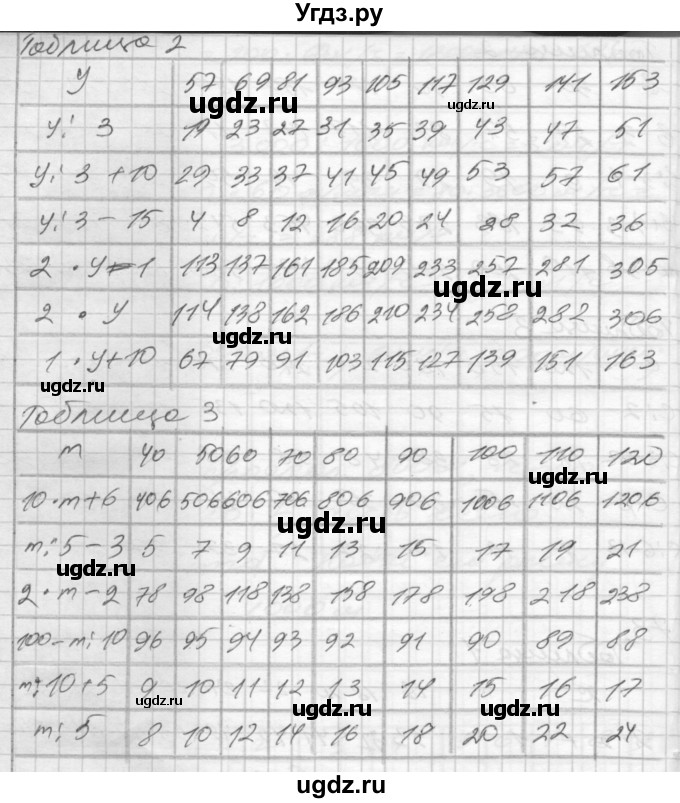 Угдз.ру
Таблица 2
y 57 69 81 93 105 117 129 141 153
y : 3 19 23 27 31 35 39 43 47 51
y : 3 + 10 29 33 37 41 45 49 53 57 61
y : 3 - 15 4 8 12 16 20 24 28 32 36
2 · y - 1 113 137 161 185 209 233 257 281 305
2 · y 114 138 162 186 210 234 258 282 306
1 · y + 10 67 79 91 103 115 127 139 151 163
Таблица 3
m 40 50 60 70 80 90 100 110 120
10 · m + 6 406 506 606 706 806 906 1006 1106 1206
m : 5 - 3 5 7 9 11 13 15 17 19 21
2 · m - 2 78 98 118 138 158 178 198 218 238
100 - m : 10 96 95 94 93 92 91 90 89 88
m : 10 + 5 9 10 11 12 13 14 15 16 17
m : 5 8 10 12 14 16 18 20 22 24
ugdz.ru
ugdz.ru
ugdz.ru
ugdz.ru
ugdz.ru
ugdz.ru
ugdz.ru
ugdz.ru
ugdz.ru
ugdz.ru
ugdz.ru
ugdz.ru
ugdz.ru